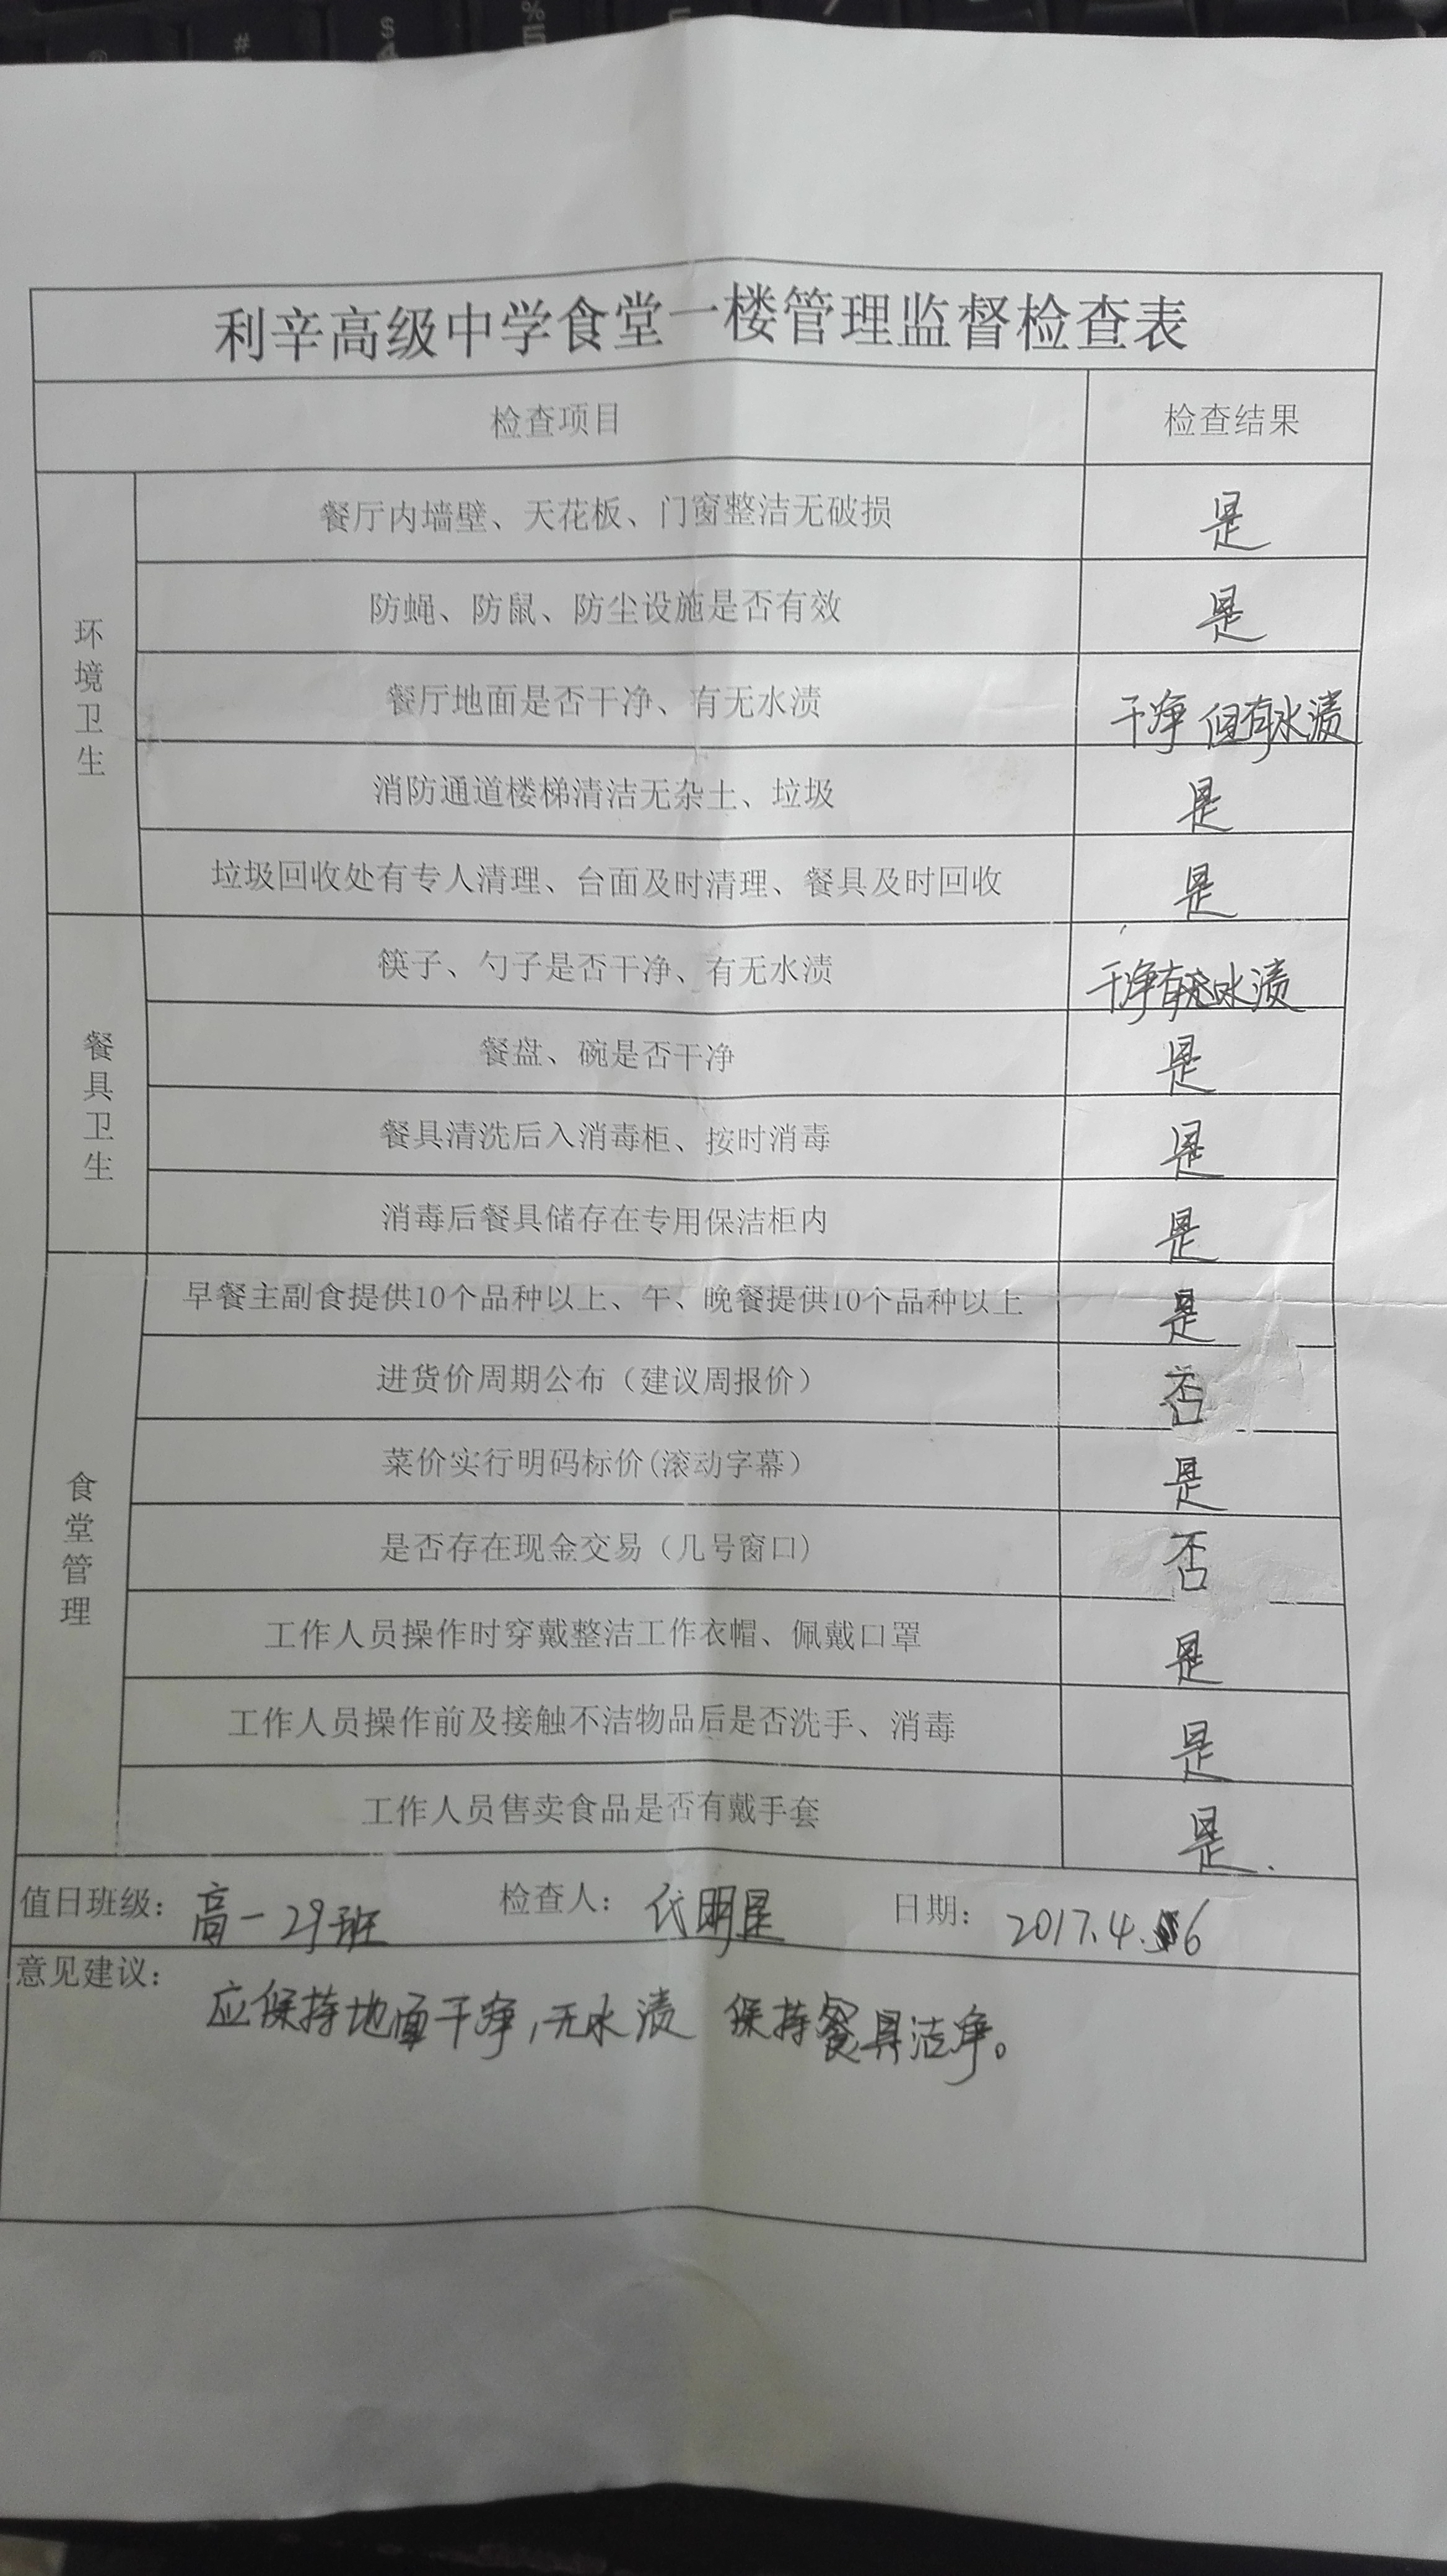 利辛高级中学食堂一楼管理监督检查表
检查项目 检查结果
环境卫生
餐厅内墙壁、天花板、门窗整洁无破损 是
防蝇、防鼠、防尘设施是否有效 是
餐厅地面是否干净、有无水渍 干净 但有水渍
消防通道楼梯清洁无杂土、垃圾 是
垃圾回收处有专人清理、台面及时清理、餐具及时回收 是
餐具卫生
筷子、勺子是否干净、有无水渍 干净有水渍
餐盘、碗是否干净 是
餐具清洗后入消毒柜、按时消毒 是
消毒后餐具储存在专用保洁柜内 是
食堂管理
早餐主副食提供10个品种以上、午、晚餐提供10个品种以上 是
进货价周期公布（建议周报价） 否
菜价实行明码标价(滚动字幕） 是
是否存在现金交易（几号窗口) 否
工作人员操作时穿戴整洁工作衣帽、佩戴口罩 是
工作人员操作前及接触不洁物品后是否洗手、消毒 是
工作人员售卖食品是否有戴手套 是.
值日班级：高一29班 检查人：代明 日期：2017.4.6
意见建议：
应保持地面干净，无水渍 保持餐具洁净。
# $ % 5 4